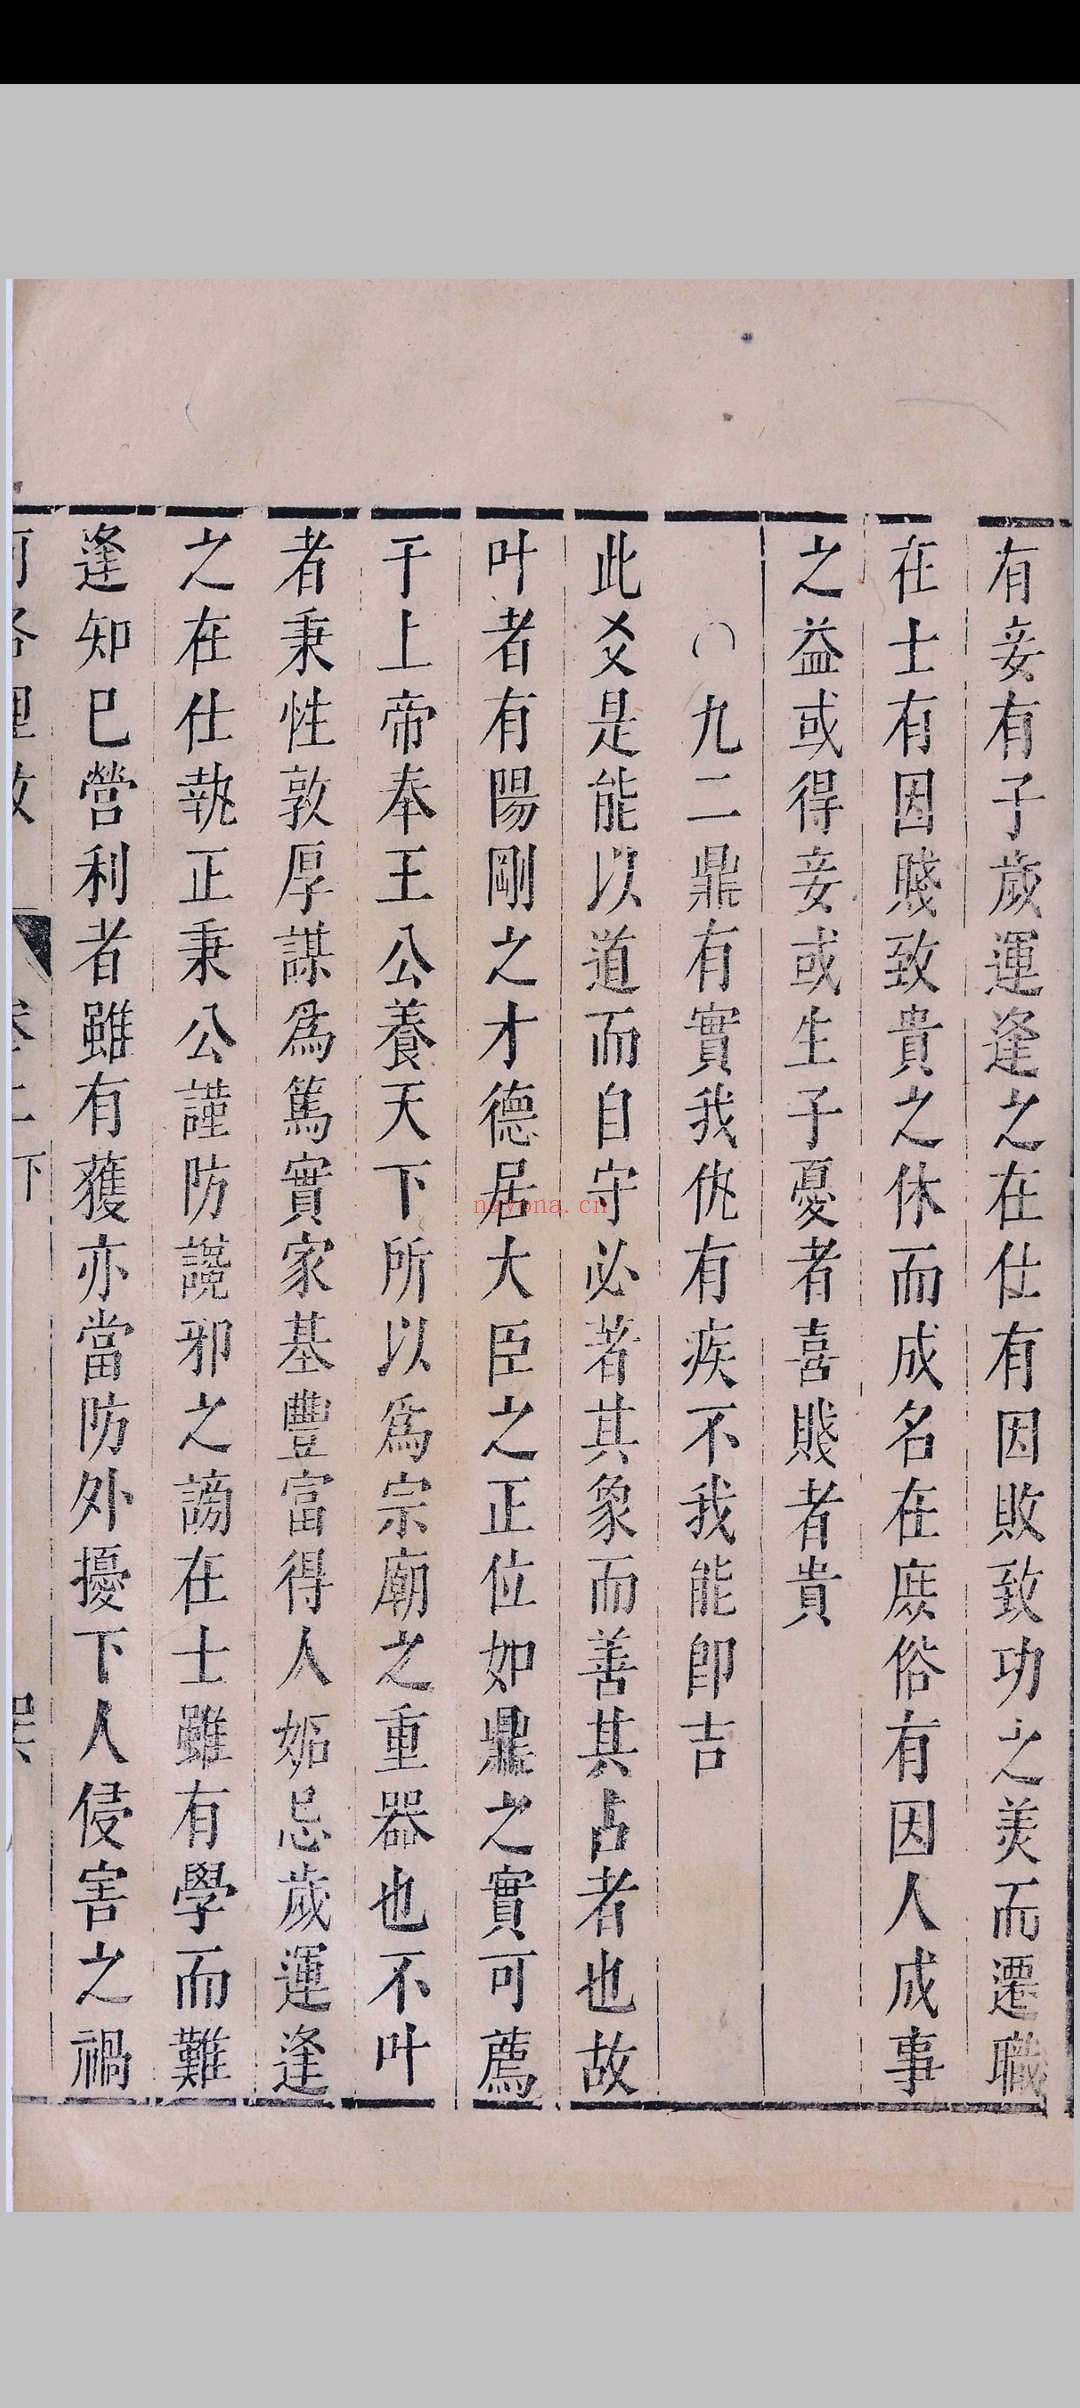 有妾有子歲運逢之在仕有因敗致功之美而遷職
在士有因賤致貴之休而成名在庶俗有因人成事
之益或得妾或生子憂者喜賤者貴
○九二鼎有實我仇有疾不我能卽吉
此爻是能以道而自守必著其象而善其占者也故
叶者有陽剛之才德居大臣之正位如鼎之實可薦
于上帝奉王公養天下所以爲宗廟之重器也不叶
者秉性敦厚謀爲篤實家基豐富得人妬忌歲運逢
之在仕執正秉公謹防讒邪之謗在士雖有學而難
逢知巳營利者雖有獲亦當防外擾下人侵害之禍
nayona.cn